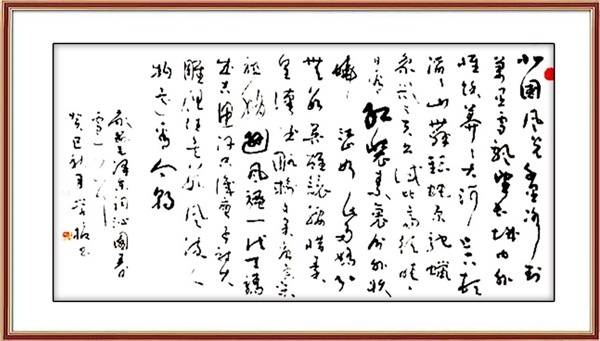 北国风光千里冰封
万里雪飘望长城内外
惟余莽莽大河上下顿
失滔滔山舞银蛇原驰蜡
象欲与天公试比高须晴
日看红装素裹分外妖
娆江山如此多娇引
无数英雄竞折腰惜秦
皇汉武略输文采唐宗宋
祖稍逊风骚一代天骄
成吉思汗只识弯弓射大
雕俱往矣数风流人
物还看今朝
毛泽东词沁园春
雪一首
癸巳秋月